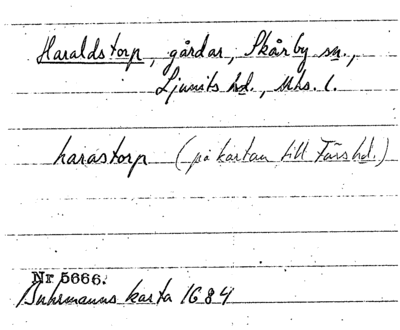 Haraldstorp, gårdar, Skårby sn.,
Ljunits hd., Mhs. l.
harastorp (på kartan till Färs hd.)
Nr 5666.
Buhrmanns karta 1684